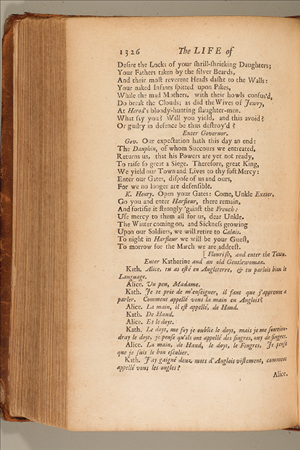 1326 The LIFE of
Desire the Locks of your shrill-shrieking Daughters;
Your Fathers taken by the silver Beards,
And their most reverent Heads dasht to the Walls:
Your naked Infants spitted upon Pikes,
While the mad Mothers, with their howls confus'd,
Do break the Clouds; as did the Wives of Jewry,
At Herod's bloody-hunting slaughter-men.
What say you? Will you yield, and this avoid?
Or guilty in defence be thus destroy'd?
Enter Governor.
Gov. Our expectation hath this day an end:
The Dauphin, of whom Succours we entreated,
Returns us, that his Powers are yet not ready,
To raise so great a Siege. Therefore, great King,
We yield our Town and Lives to thy soft Mercy:
Enter our Gates, dispose of us and ours,
For we no longer are defensible.
K. Henry. Open your Gates: Come, Unkle Exeter,
Go you and enter Harfleur, there remain,
And fortifie it strongly 'gainst the French:
Use mercy to them all for us, dear Unkle.
The Winter coming on, and Sickness growing
Upon our Soldiers, we will retire to Calais.
To night in Harfleur we will be your Guest,
To morrow for the March we are addrest.
[Flourish, and enter the Town.
Enter Katherine and an old Gentlewoman.
Kath. Alice, tu as esté en Angleterre, & tu parlois bien le
Language.
Alice. Un peu, Madame.
Kath. Je te prie de m'enseigner, il faut que j'apprenne a
parler. Comment appellé vous la main en Anglois?
Alice. La main, il est appellé, de Hand.
Kath. De Hand.
Alice. Et le doyt.
Kath. Le doyt, ma foy je oublie le doyt, mais je me souvien-
dray le doyt, je pense qu'ils ont appellé des fingres, ouy de fingres.
Alice. La main, de Hand, le doyt, le Fingres. Je pense
que je suis le bon escolier.
Kath. J'ay gaigné deux mots d'Anglois vistement, comment
appellé vous les ongles?
Alice.